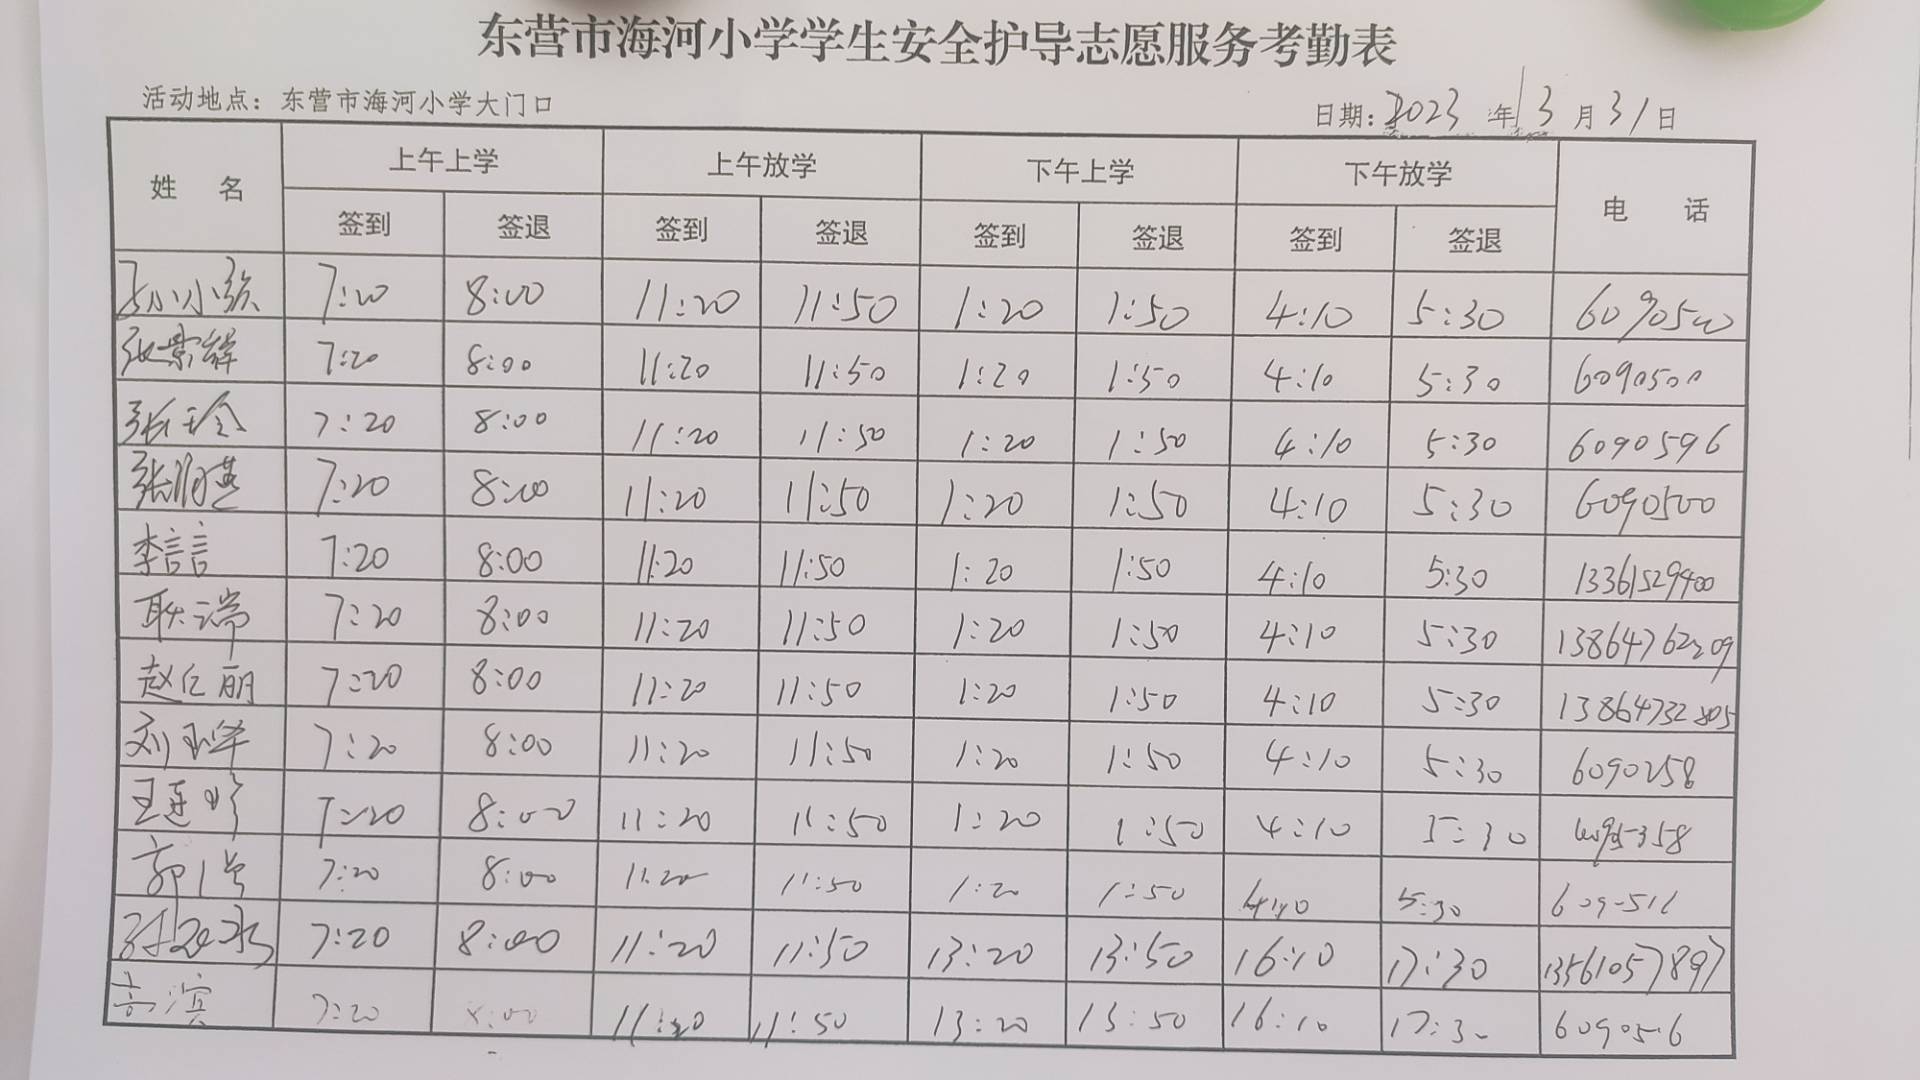 东营市海河小学学生安全护导志愿服务考勤表
活动地点：东营市海河小学大门口 日期：2023 年 3 月 31 日
姓 名 上午上学 上午放学 下午上学 下午放学 电 话
签到 签退 签到 签退 签到 签退 签到 签退
7:20 8:00 11:20 11:50 1:20 1:50 4:10 5:30 6090500
张景辉 7:20 8:00 11:20 11:50 1:20 1:50 4:10 5:30 6090500
张玲 7:20 8:00 11:20 11:50 1:20 1:50 4:10 5:30 6090596
7:20 8:00 11:20 11:50 1:20 1:50 4:10 5:30 6090500
李言言 7:20 8:00 11:20 11:50 1:20 1:50 4:10 5:30 13361529400
耿瑞 7:20 8:00 11:20 11:50 1:20 1:50 4:10 5:30 13864762209
赵仁丽 7:20 8:00 11:20 11:50 1:20 1:50 4:10 5:30 13864732805
刘玉华 7:20 8:00 11:20 11:50 1:20 1:50 4:10 5:30 6090258
7:20 8:00 11:20 11:50 1:20 1:50 4:10 5:30
7:20 8:00 11:20 11:50 1:20 1:50 4:10 5:30
7:20 8:00 11:20 11:50 13:20 13:50 16:10 17:30 13561057897
高滨 7:20 8:00 11:20 11:50 13:20 13:50 16:10 17:30